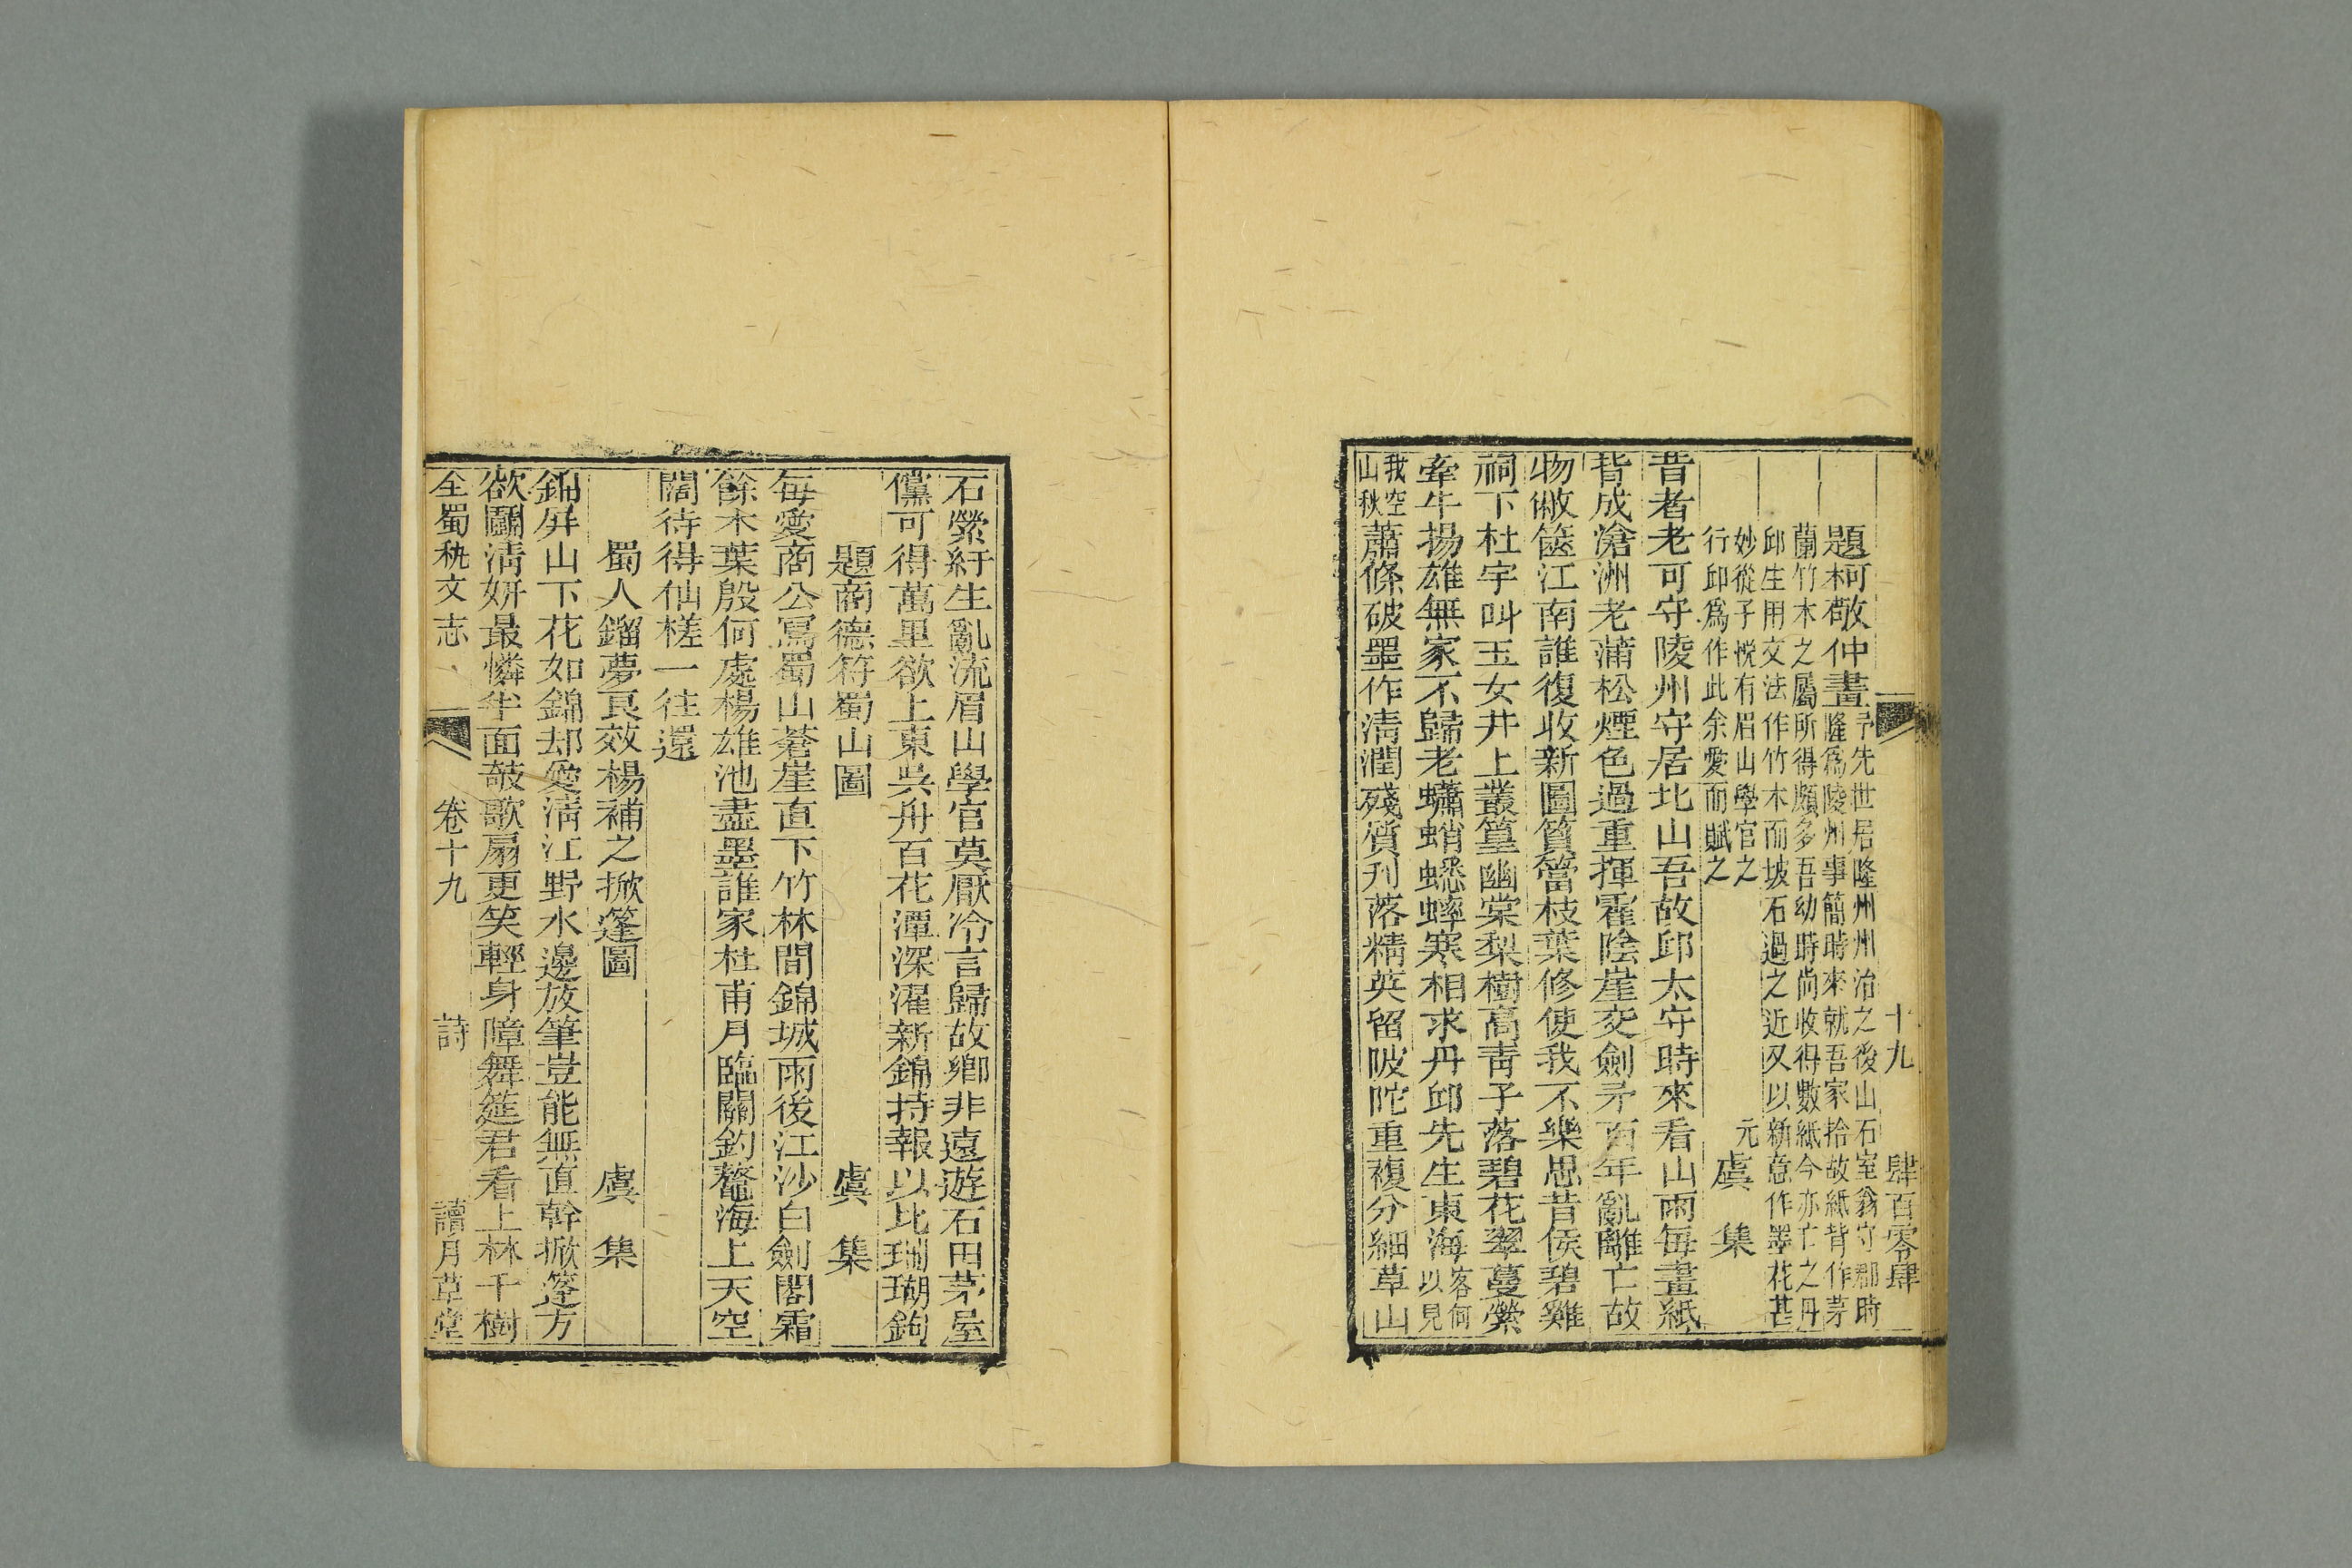 十九 肆百零肆
題柯敬仲畫
予先世居隆州州治之後山石室翁守郡時
隆爲陵州事簡時來就吾家拾故紙背作茅
蘭竹木之屬所得頗多吾幼時尚收得數紙今亦亡之丹
邱生用文法作竹木而坡石過之近又以新意作墨花甚
妙從子悅有眉山學官之
行邱爲作此余愛而賦之
元 虞集
昔者老可守陵州守居北山吾故邱太守時來看山雨每畫紙
背成滄洲老蒲松煙色過重揮霍陰崖交劍矛百年亂離亡故
物敝篋江南誰復收新圖篔簹枝葉修使我不樂思昔侯碧雞
祠下杜宇叫玉女井上叢篁幽棠梨樹高青子落碧花翠蔓縈
牽牛揚雄無家不歸老蠨蛸蟋蟀寒相求丹邱先生東海客何
以見
我空
山秋蕭條破墨作清潤殘質刊落精英留陂陀重複分細草山
石縈紆生亂流眉山學官莫厭冷言歸故鄉非遠遊石田茅屋
儻可得萬里欲上東吳舟百花潭深濯新錦持報以比珊瑚鉤
題商德符蜀山圖 虞集
每愛商公寫蜀山蒼崖直下竹林間錦城雨後江沙白劍閣霜
餘木葉殷何處楊雄池盡墨誰家杜甫月臨關釣鼇海上天空
闊待得仙槎一往還
蜀人鎦夢良效楊補之掀篷圖 虞集
錦屏山下花如錦却愛清江野水邊放筆豈能無直幹掀篷方
欲鬬清妍最憐半面欹歌扇更笑輕身障舞筵君看上林千樹
全蜀秇文志 卷十九 詩 讀月草堂